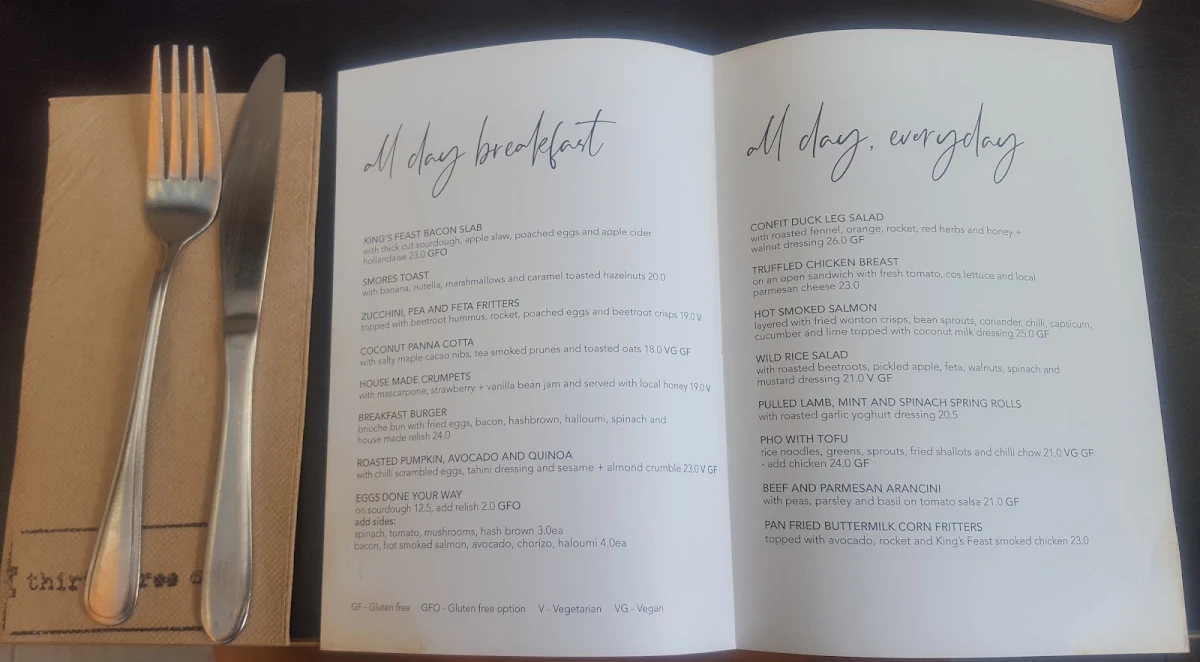 all day breakfast
KING'S FEAST BACON SLAB
with thick cut sourdough, apple slaw, poached eggs and apple cider
hollandaise 23.0 GFO
SMORES TOAST
with banana, nutella, marshmallows and caramel toasted hazelnuts 20.0
ZUCCHINI, PEA AND FETA FRITTERS
topped with beetroot hummus, rocket, poached eggs and beetroot crisps 19.0 V
COCONUT PANNA COTTA
with salty maple cacao nibs, tea smoked prunes and toasted oats 18.0 VG GF
HOUSE MADE CRUMPETS
with mascarpone, strawberry + vanilla bean jam and served with local honey 19.0 V
BREAKFAST BURGER
brioche bun with fried eggs, bacon, hashbrown, halloumi, spinach and
house made relish 24.0
ROASTED PUMPKIN, AVOCADO AND QUINOA
with chilli scrambled eggs, tahini dressing and sesame + almond crumble 23.0 V GF
EGGS DONE YOUR WAY
on sourdough 12.5, add relish 2.0 GFO
add sides:
spinach, tomato, mushrooms, hash brown 3.0ea
bacon, hot smoked salmon, avocado, chorizo, haloumi 4.0ea
GF - Gluten free GFO - Gluten free option V - Vegetarian VG - Vegan
all day, everyday
CONFIT DUCK LEG SALAD
with roasted fennel, orange, rocket, red herbs and honey +
walnut dressing 26.0 GF
TRUFFLED CHICKEN BREAST
on an open sandwich with fresh tomato, cos lettuce and local
parmesan cheese 23.0
HOT SMOKED SALMON
layered with fried wonton crisps, bean sprouts, coriander, chilli, capsicum,
cucumber and lime topped with coconut milk dressing 25.0 GF
WILD RICE SALAD
with roasted beetroots, pickled apple, feta, walnuts, spinach and
mustard dressing 21.0 V GF
PULLED LAMB, MINT AND SPINACH SPRING ROLLS
with roasted garlic yoghurt dressing 20.5
PHO WITH TOFU
rice noodles, greens, sprouts, fried shallots and chilli chow 21.0 VG GF
- add chicken 24.0 GF
BEEF AND PARMESAN ARANCINI
with peas, parsley and basil on tomato salsa 21.0 GF
PAN FRIED BUTTERMILK CORN FRITTERS
topped with avocado, rocket and King's Feast smoked chicken 23.0